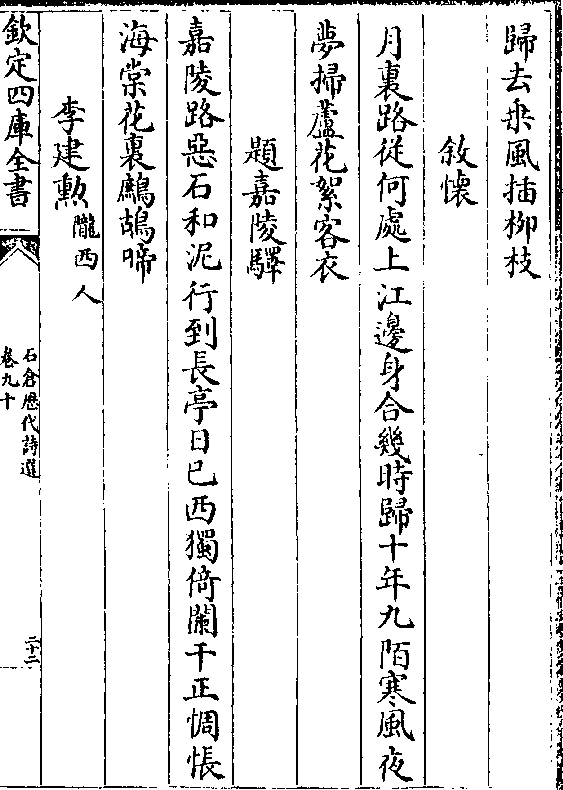 歸去乗風插柳枝
敘懷
月裏路從何處上江邊身合幾時歸十年九陌寒風夜
夢掃蘆花絮客衣
題嘉陵驛
嘉陵路惡石和泥行到長亭日已西獨倚闌干正惆悵
海棠花裏鷓鴣啼
李建勲隴西人
欽定四庫全書
石倉歴代詩選
卷九十
二十二